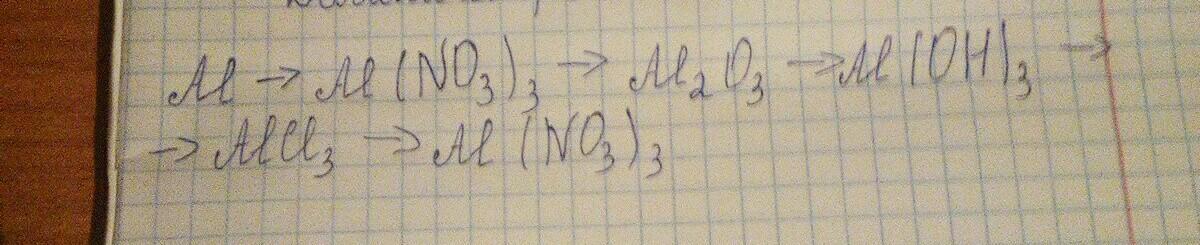 Al → Al(NO₃)₃ → Al₂O₃ → Al(OH)₃ →
→ AlCl₃ → Al(NO₃)₃